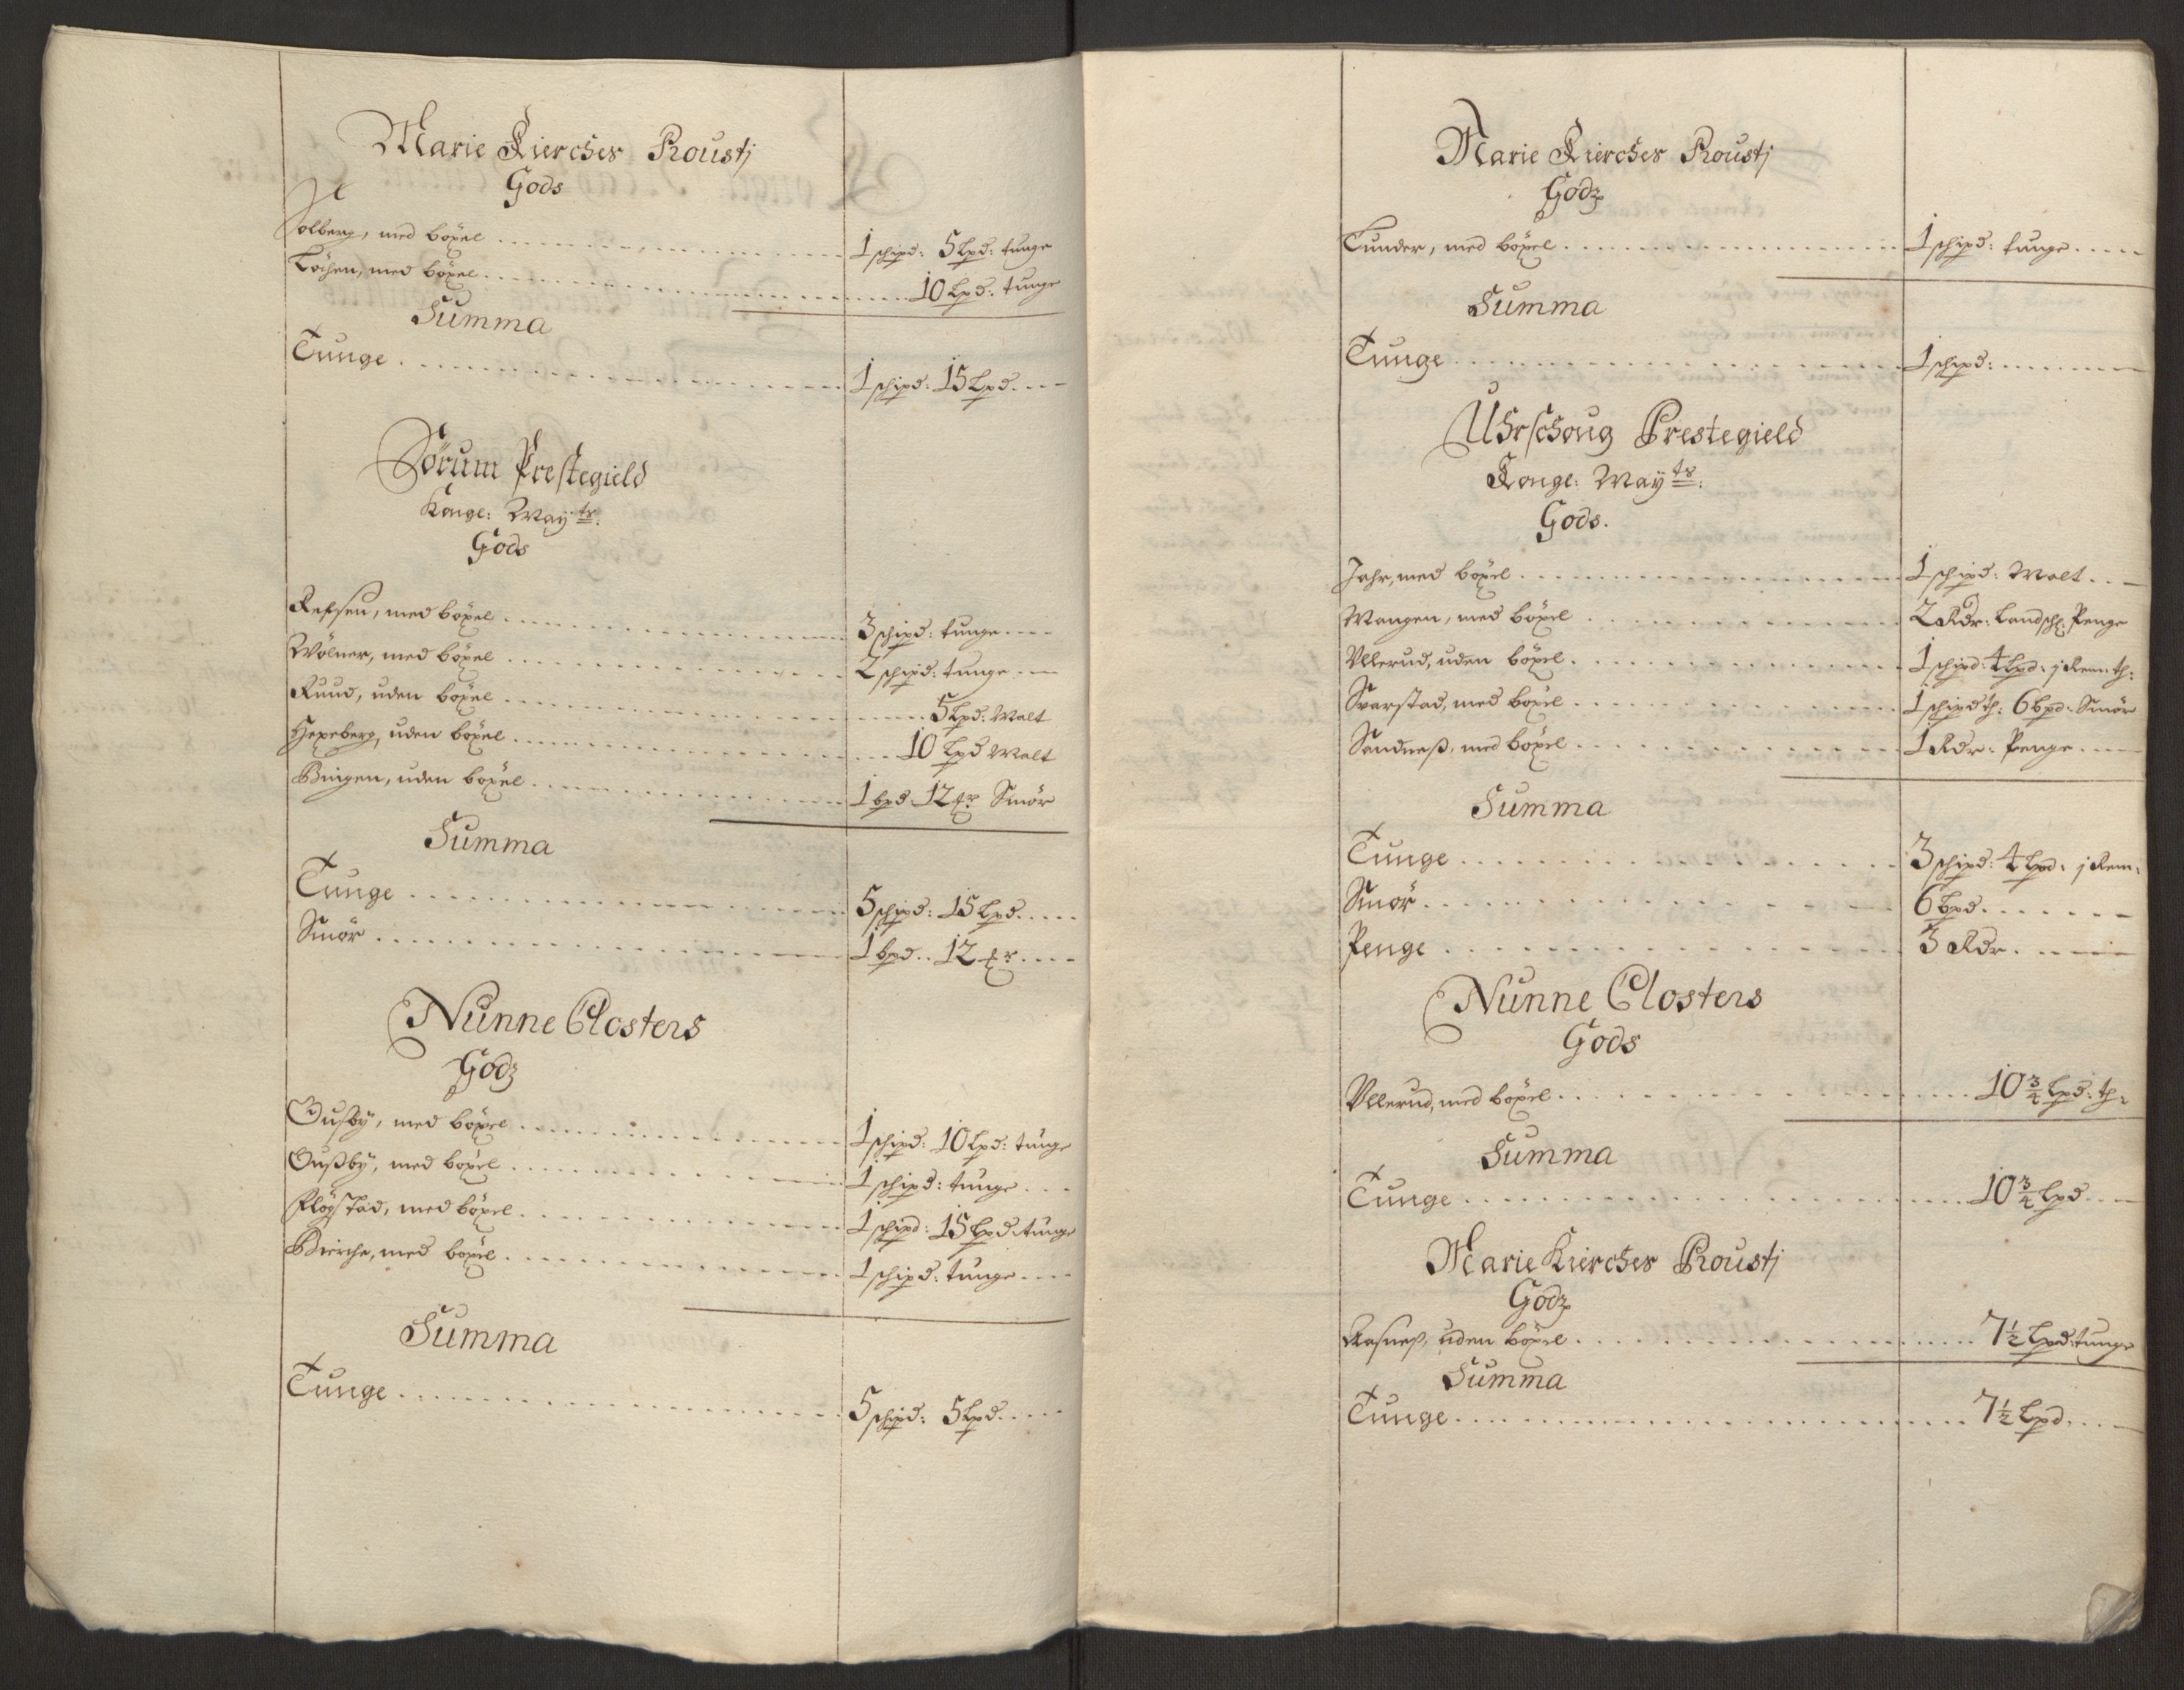 Marie Kierches Prousti
Gods
Solberg, med böxel . . . 1 schipd: 5 Lpd: tunge
Löchen, med böxel . . . 10 Lpd: tunge
Summa
Tunge . . . 1 schipd: 15 Lpd. . .
Sörum Prestegield
Konge: Mayts:
Gods
Refsen, med böxel . . . 3 schipd: tunge . . .
Wölner, med böxel . . . 2 schipd: tunge . . .
Ruud, uden böxel . . . 5 Lpd: Malt
Hexeberg, uden böxel . . . 10 Lpd Malt
Bingen, uden böxel . . . 1 bpd. 12 mr Smör
Summa
Tunge . . . 5 schipd: 15 Lpd. . .
Smör . . . 1 bpd. . 12 mr. . .
Nunne Closters
Godz
Gusby, med böxel . . . 1 schipd: 10 Lpd: tunge
Gussby, med böxel . . . 1 schipd: tunge . . .
Flögstad, med böxel . . . 1 schipd: 15 Lpd: tunge
Bierche, med böxel . . . 1 schipd: tunge . . .
Summa
Tunge . . . 5 schipd: 5 Lpd. . .
Marie Kierches Prousti
Godz
Tunder, med böxel . . . 1 schipd: tunge . . .
Summa
Tunge . . . 1 schipd: . . .
Uhrschoug Prestegield
Konge: Mayts:
Gods.
Jahr, med böxel . . . 1 schipd: Malt . . .
Mangen, med böxel . . . 2 Rdr: Landsch: Penge
Ullerud, uden böxel . . . 1 schipd: 4 Lpd: j Rem: th:
Svarstad, med böxel . . . 1 schipd th: 6 bpd: Smör
Sandness, med böxel . . . 1 Rdr: Penge . . .
Summa
Tunge . . . 3 schipd: 4 Lpd: j Rem:
Smör . . . 6 bpd. . .
Penge . . . 3 Rdr. . .
Nunne Closters
Gods
Ullerud, med böxel . . . 10 3/4 Lpd: th:
Summa
Tunge . . . 10 3/4 Lpd . . .
Marie Kierches Prousti
Godz
Aasness, uden böxel . . . 7 1/2 Lpd: tunge
Summa
Tunge . . . 7 1/2 Lpd. . .